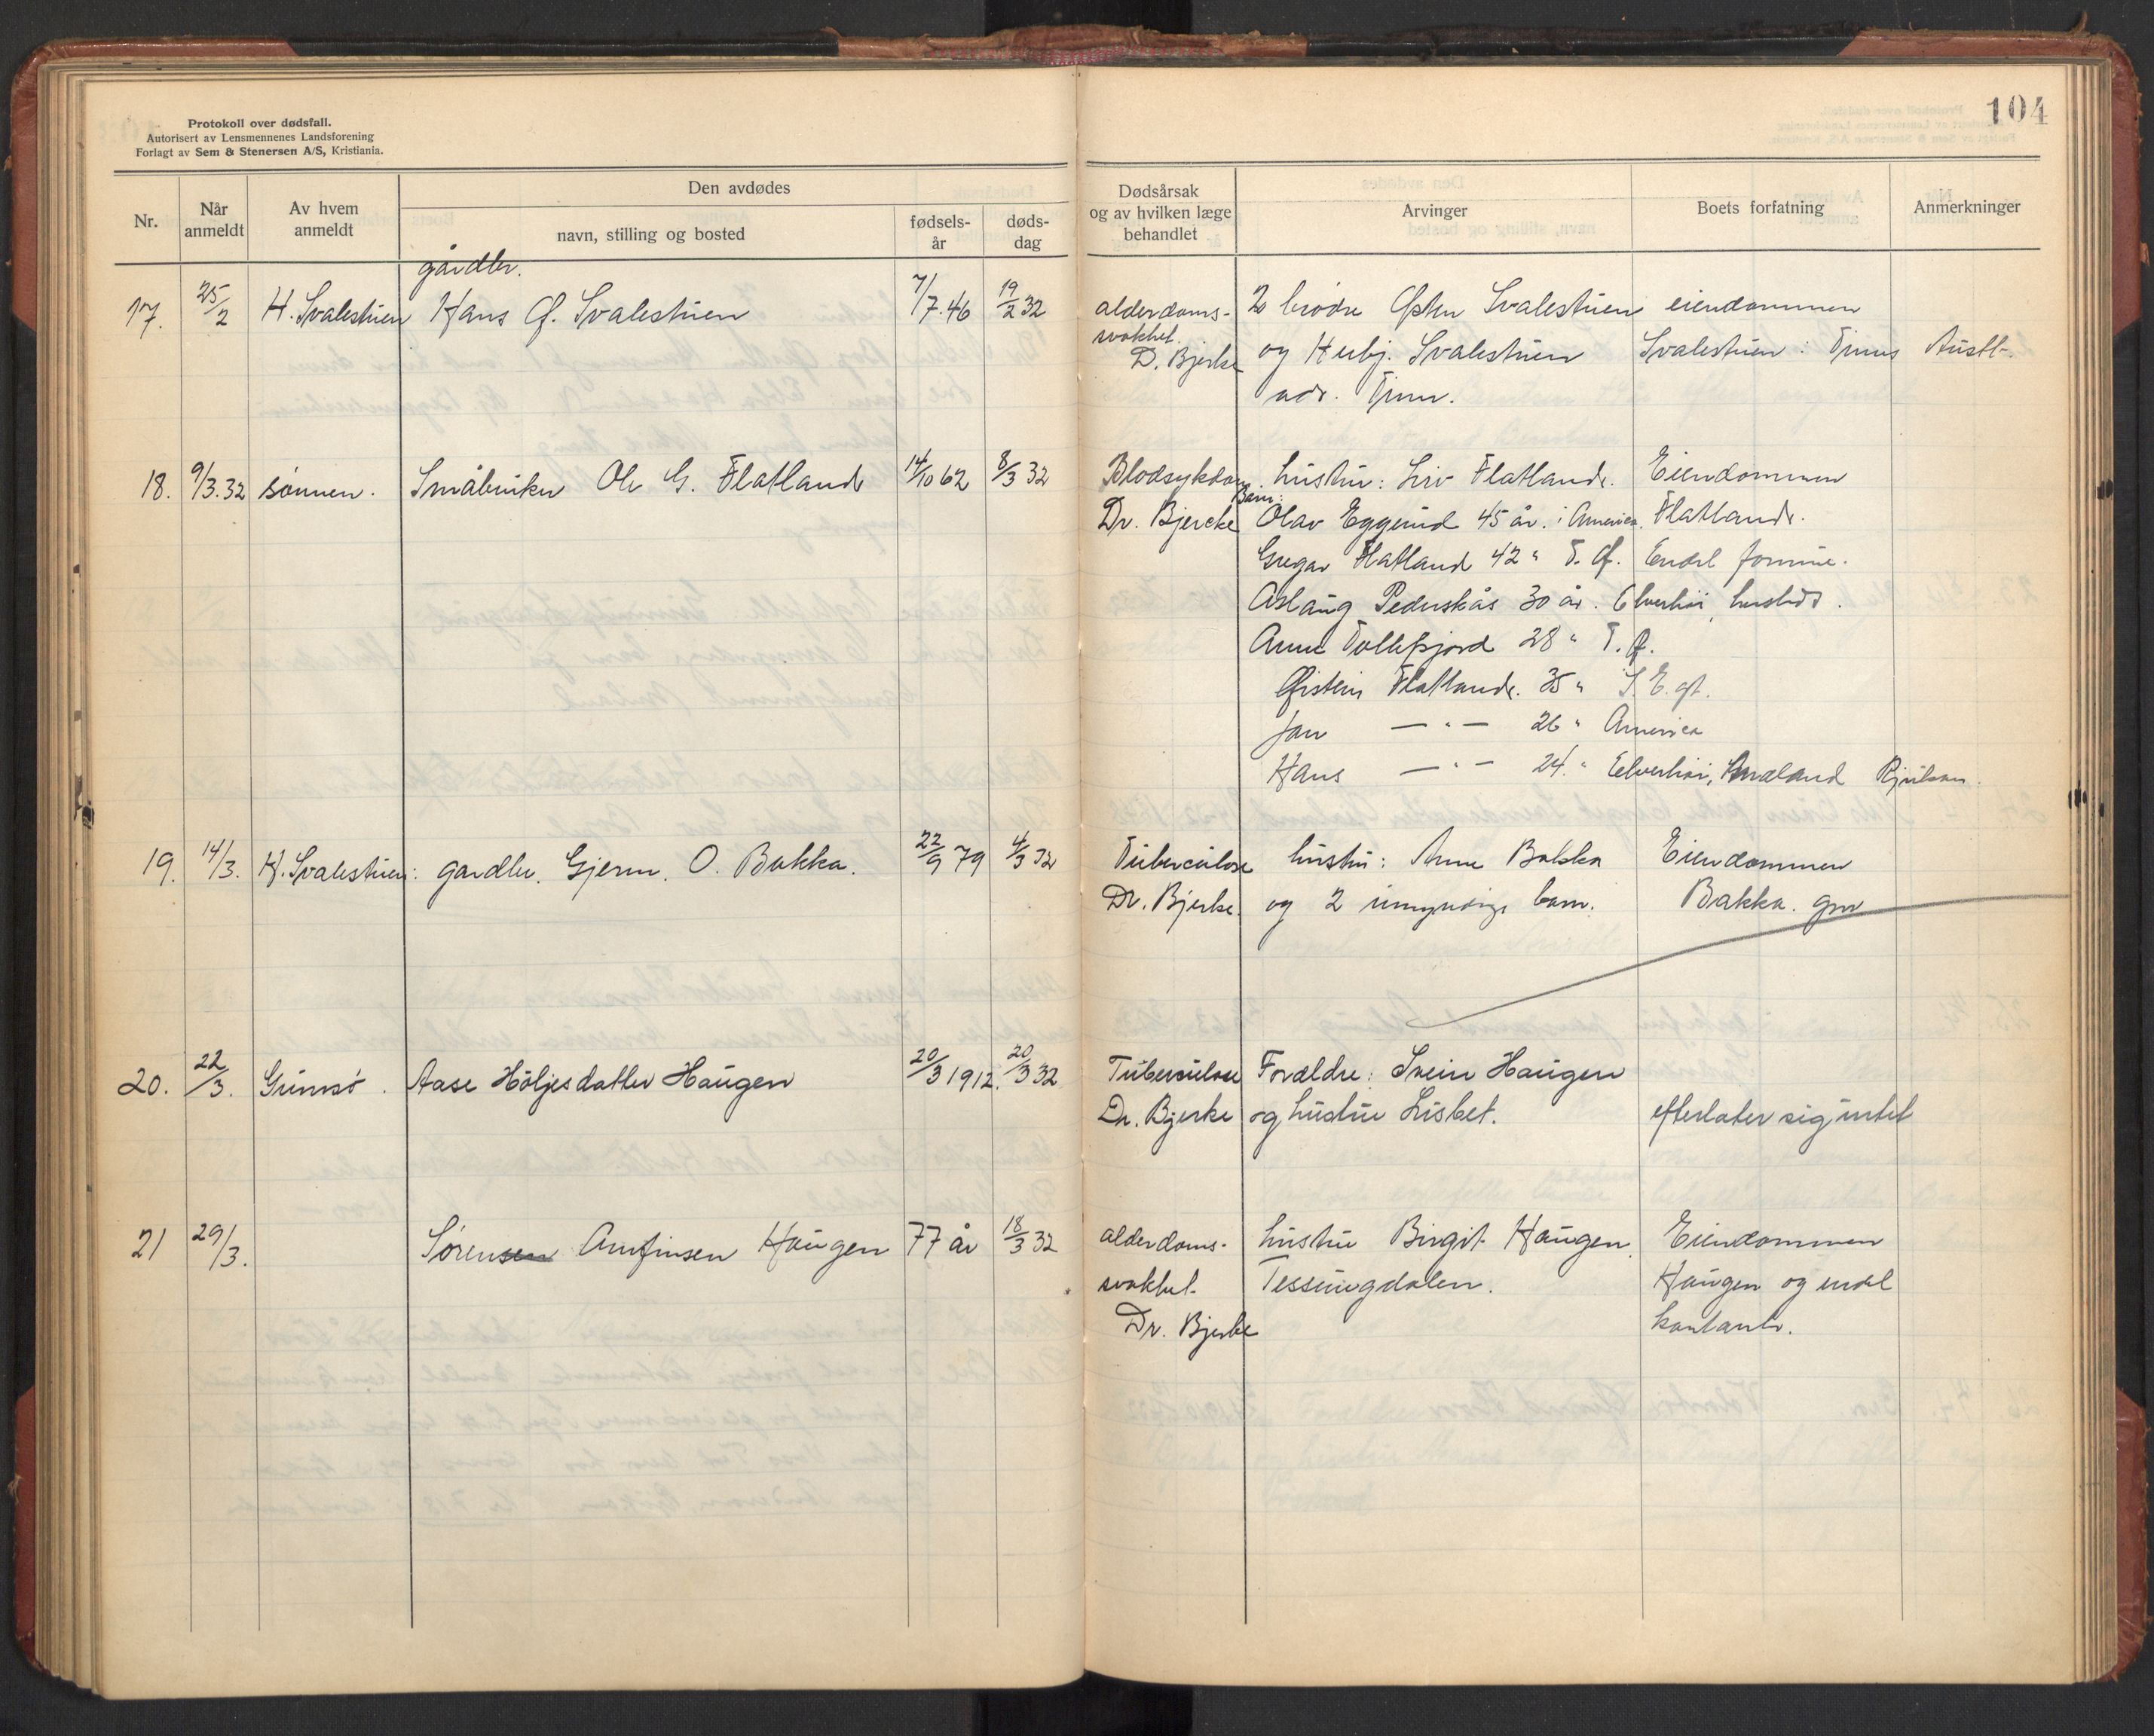 Protokoll over dødsfall.
Autorisert av Lensmennenes Landsforening
Forlagt av Sem & Stenersen A/S, Kristiania.
104
Nr.
Når anmeldt
Av hvem anmeldt
Den avdødes
navn, stilling og bosted
fødsels-år
døds-dag
Dødsårsak og av hvilken læge behandlet
Arvinger
Boets forfatning
Anmerkninger
gårdbr.
17. 25/2 H. Svalestuen Hans Ø. Svalestuen 7/7.46 19/2 32 alderdoms- 2 brødre Østen Svalestuen eiendommen
svakhet. D. Bjerke og Herbj. Svalestuen Svalestuen i Tinns Austb.
adr. Tinn.
18. 9/3.32 sønnen. Småbruker Ole G. Flatland 14/10 62 8/3 32 Blodsykdom hustru: Liv Flatland. Eiendommen
Barn:
Dr. Bjercke Olav Eggerud 45 år. i America. Flatland.
Gregar Flatland 42 " T. Ø. Endel formue.
Aslaug Pederskås 30 år. Elverhøi, husleds.
Anne Tollefsjord 28 " T. Ø.
Øistein Flatland. 35 " S. E. gt.
Jan — " — 26 " America
Hans — " — 24. " Elverhøi, Mæland Rjukan.
19. 14/3. H. Svalestuen: gardbr. Gjerm. O. Bakka. 22/9 79 4/3 32 Tuberculose hustru: Anne Bakka Eiendommen
Dr. Bjerke. og 2 umyndige barn. Bakka. gnr
20. 22/3. Grimsø. Aase Höljesdatter Haugen 20/3 1912. 20/3 32 Tuberculose Forældre: Svein Haugen
Dr. Bjerke og hustru Lisbet. efterlater sig intet
21 29/3. Sørensen Arnfinsen Haugen 77 år 18/3 32 alderdoms- hustru Birgit Haugen. Eiendommen
svakhet. Tessungdalen. Haugen og endel
Dr. Bjerke kontanter.